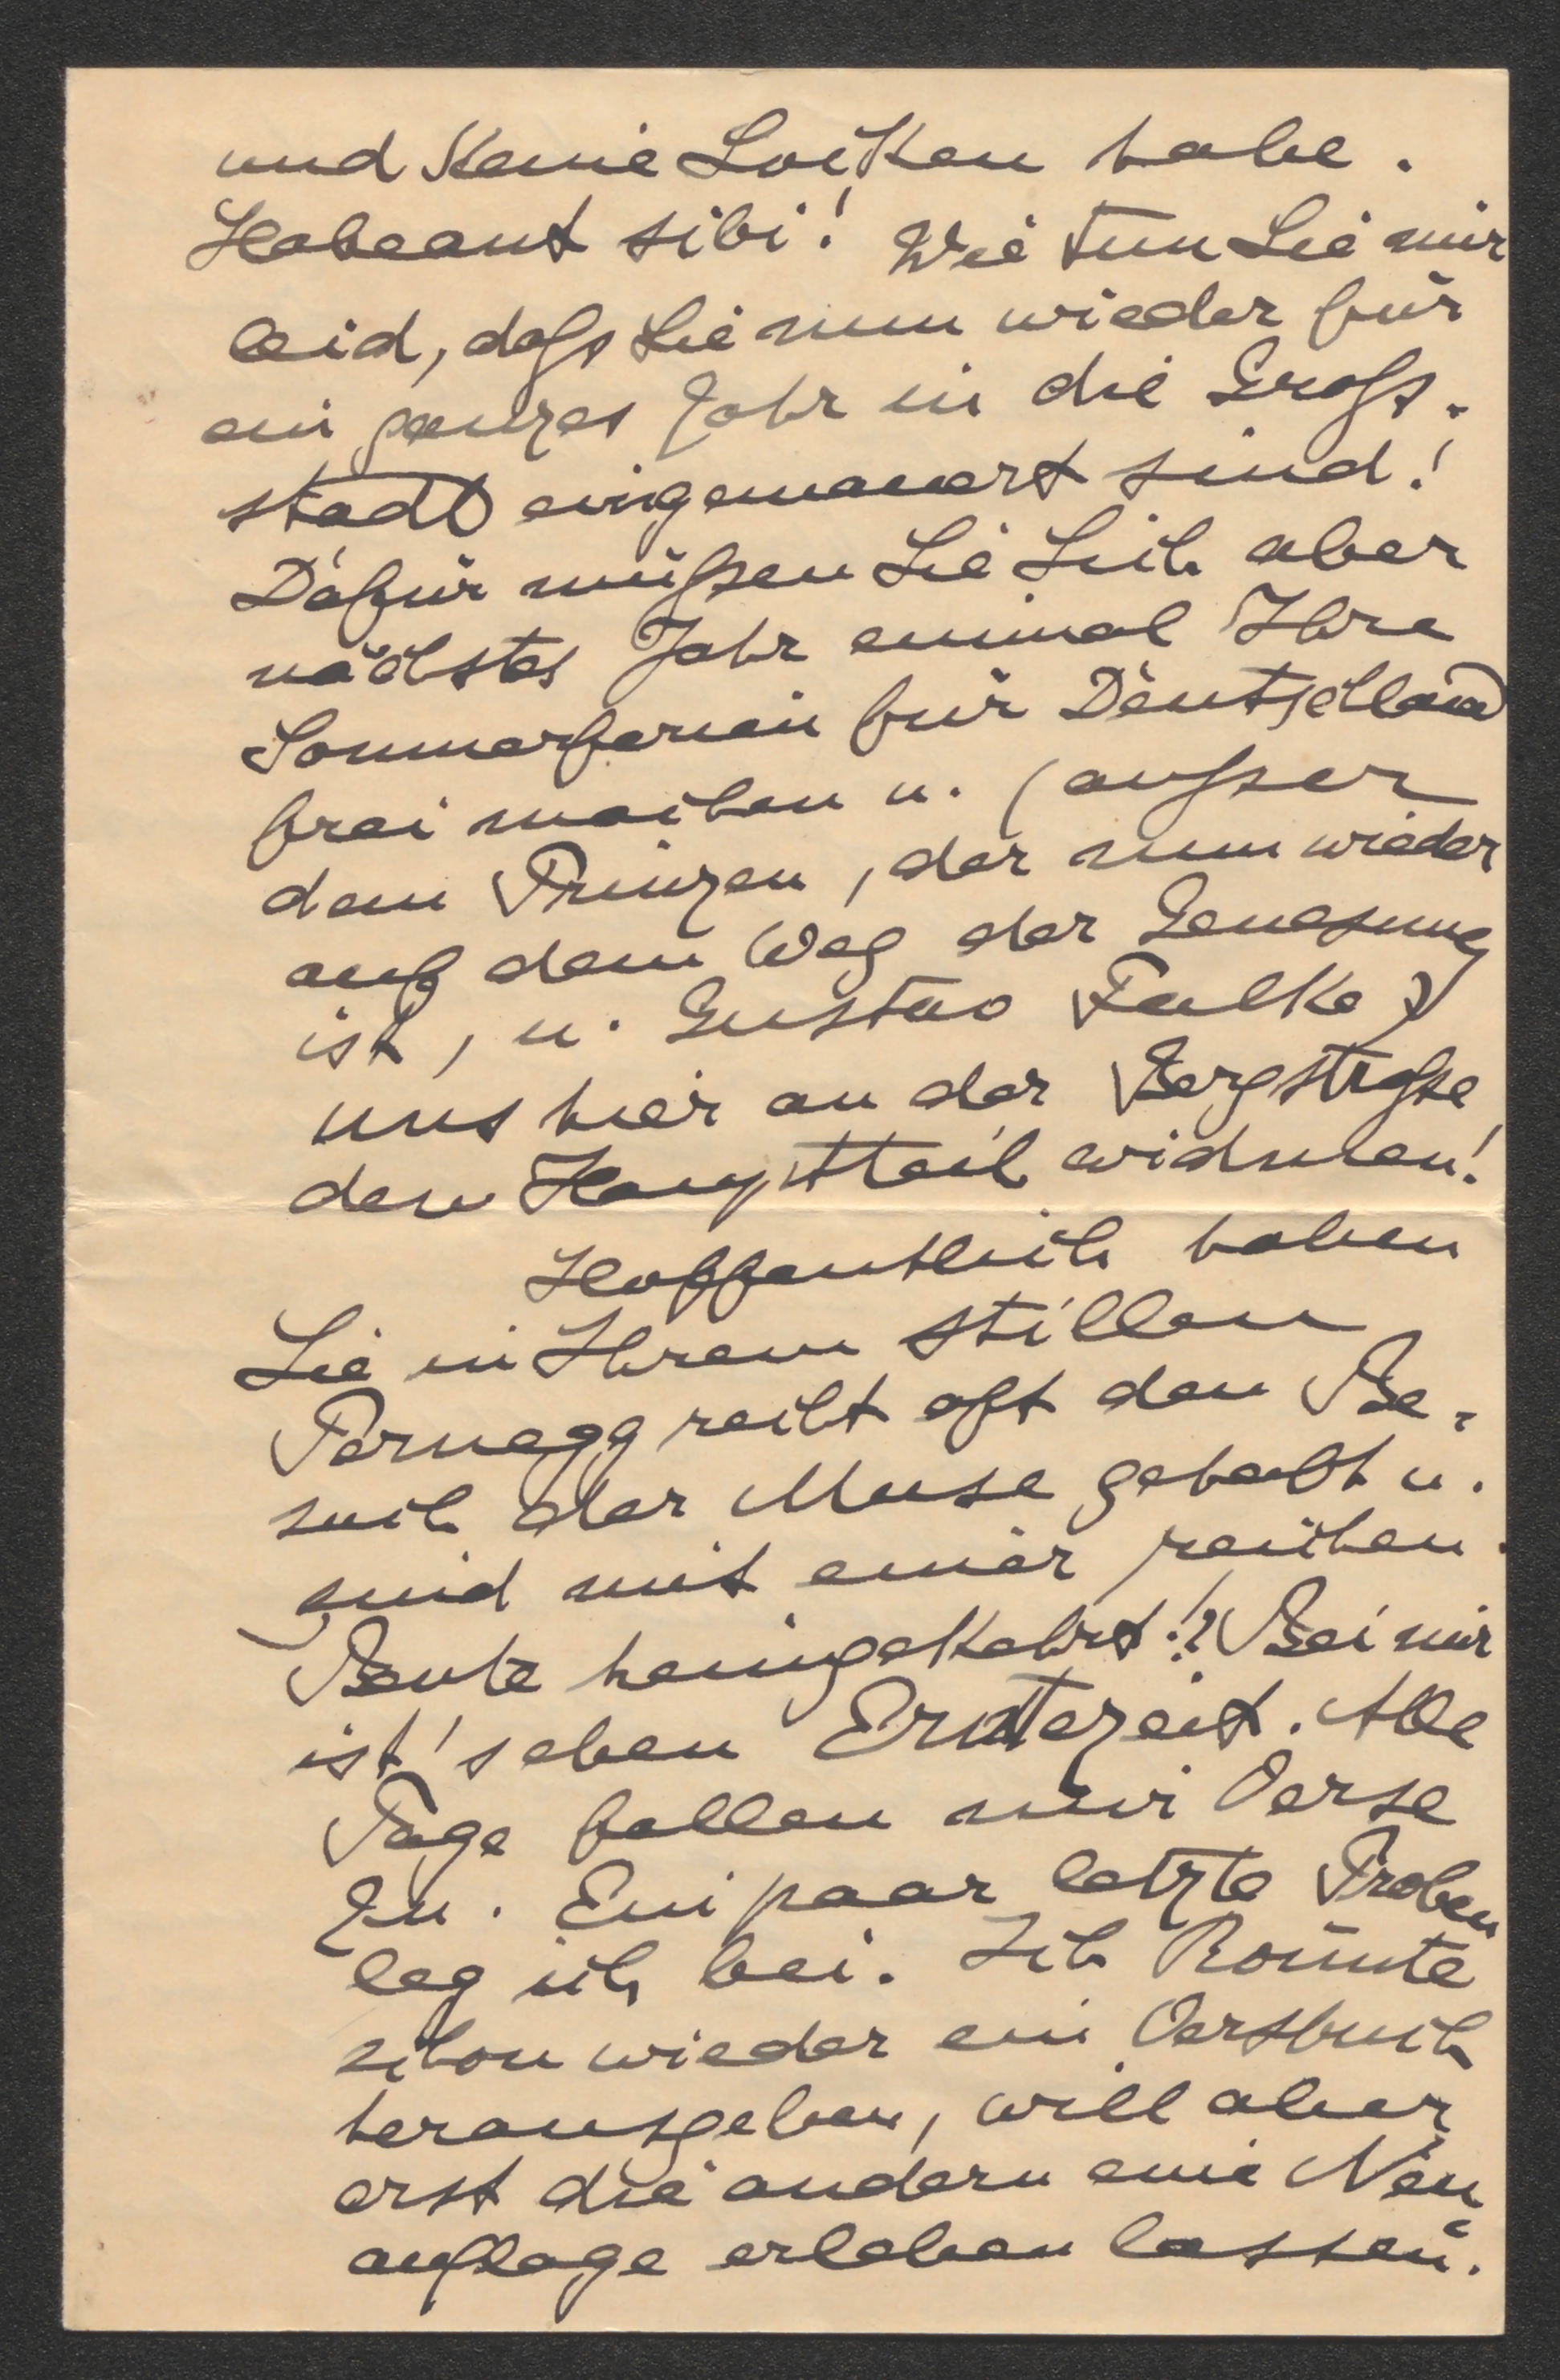 und keine Locken habe.
Habeant sibi! Wie tun Sie mir
leid, daſs Sie nun wieder für
ein ganzes Jahr in die Groſs-
stadt eingemauert sind!
Dafür müſsen Sie Sich aber
nächstes Jahr einmal Ihre
Sommerferien für Deutschland
frei machen u. (auſser
dem Prinzen, der nun wieder
auf dem Weg der Genesung
ist, u. Gustav Falke)
uns hier an der Bergstraſse
den Hauptteil widmen!
Hoffentlich haben
Sie in Ihrem stillen
Pernegg recht oft den Be-
such der Muse gehabt u.
sind mit einer reichen
Beute heimgekehrt!? Bei mir
ist's eben Erntezeit. Alle
Tage fallen mir Verse
zu. Ein paar letzte Proben
leg ich bei. Ich könnte
schon wieder ein Versbuch
herausgeben, will aber
erst die andern eine Neu-
auflage erleben lassen.